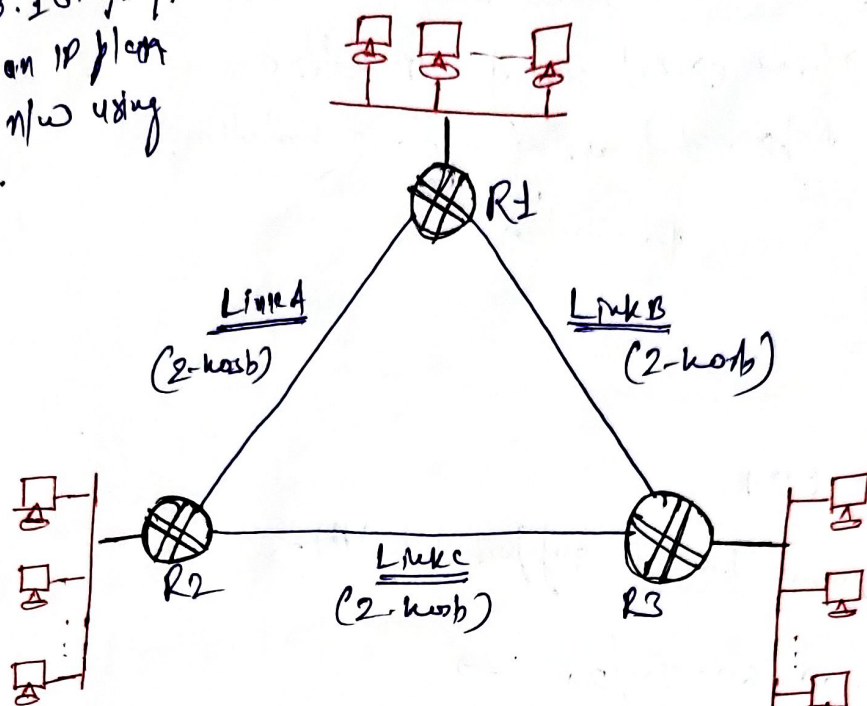 an IP plan
n/w using
R1
Link A
(2-host)
Link B
(2-host)
R2
Link C
(2-host)
R3